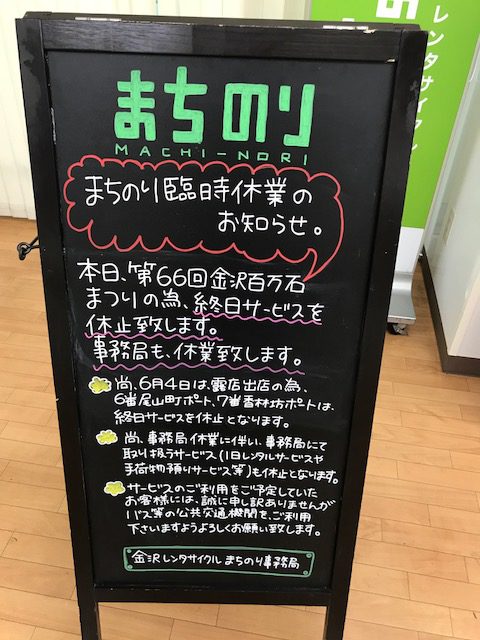 まちのり
MACHI-NORI
まちのり臨時休業の
お知らせ。
本日、第66回金沢百万石
まつりの為、終日サービスを
休止致します。
事務局も、休業致します。
尚、6月4日は、露店出店の為、
6番尾山町ポート、7番香林坊ポートは、
終日サービスを休止となります。
尚、事務局休業に伴い、事務局にて
取り扱うサービス(1日レンタルサービスや
手荷物預りサービス等)も休止となります。
サービスのご利用をご予定していた
お客様には、誠に申し訳ありませんが
バス等の公共交通機関を、ご利用
下さいますようよろしくお願い致します。
金沢レンタサイクル まちのり事務局
レンタサイクル